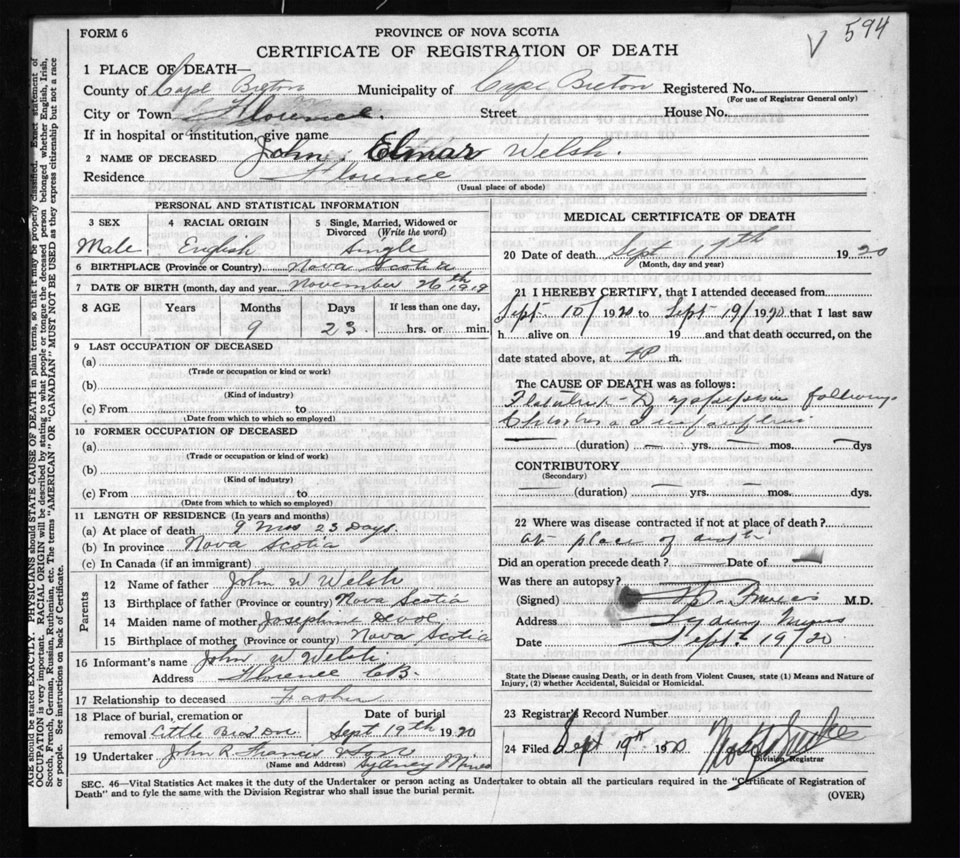 V 594
FORM 6
PROVINCE OF NOVA SCOTIA
CERTIFICATE OF REGISTRATION OF DEATH
1 PLACE OF DEATH—
County of Cape Breton Municipality of Cape Breton Registered No.
(For use of Registrar General only)
City or Town Florence. Street House No.
If in hospital or institution, give name
2 NAME OF DECEASED John Elmar Welsh.
Residence Florence
(Usual place of abode)
PERSONAL AND STATISTICAL INFORMATION
3 SEX 4 RACIAL ORIGIN 5 Single, Married, Widowed or
Divorced (Write the word)
Male English Single
6 BIRTHPLACE (Province or Country) Nova Scotia
7 DATE OF BIRTH (month, day and year) November 26th 1919
8 AGE Years Months Days If less than one day,
9 23 hrs. or min.
9 LAST OCCUPATION OF DECEASED
(a)
(Trade or occupation or kind of work)
(b)
(Kind of industry)
(c) From to
(Date from which to which so employed)
10 FORMER OCCUPATION OF DECEASED
(a)
(Trade or occupation or kind of work)
(b)
(Kind of industry)
(c) From to
(Date from which to which so employed)
11 LENGTH OF RESIDENCE (In years and months)
(a) At place of death 9 Mos 23 Days.
(b) In province Nova Scotia
(c) In Canada (if an immigrant)
Parents
12 Name of father John W Welsh
13 Birthplace of father (Province or country) Nova Scotia
14 Maiden name of mother Josephine
15 Birthplace of mother (Province or country) Nova Scotia
16 Informant's name John W Welsh
Address Florence CB.
17 Relationship to deceased Father
18 Place of burial, cremation or Date of burial
removal Little Bras Dor Sept 19th 1920
19 Undertaker John R Francis & Son
(Name and Address) Sydney Mines
MEDICAL CERTIFICATE OF DEATH
20 Date of death Sept 1920
(Month, day and year)
21 I HEREBY CERTIFY, that I attended deceased from
Sept 10/ 1920 to Sept 19/ 1920 that I last saw
h alive on 19 and that death occurred, on the
date stated above, at m.
The CAUSE OF DEATH was as follows:
following
Cholera Infantum
(duration) yrs. mos. dys
CONTRIBUTORY
(Secondary)
(duration) yrs. mos. dys.
22 Where was disease contracted if not at place of death?
at place of death
Did an operation precede death? Date of
Was there an autopsy?
(Signed) M.D.
Address Sydney Mines
Date Sept 19/20
State the Disease causing Death, or in death from Violent Causes, state (1) Means and Nature of
Injury, (2) whether Accidental, Suicidal or Homicidal.
23 Registrar's Record Number
24 Filed Sept 19th 1920
Division Registrar
SEC. 46—Vital Statistics Act makes it the duty of the Undertaker or person acting as Undertaker to obtain all the particulars required in the "Certificate of Registration of
Death" and to fyle the same with the Division Registrar who shall issue the burial permit.
(OVER)
AGE should be stated EXACTLY. PHYSICIANS should STATE CAUSE OF DEATH in plain terms, so that it may be properly classified. Exact statement of
OCCUPATION is very important. RACIAL ORIGIN will be described by stating to what people or tongue the deceased person belonged, whether English, Irish,
Scotch, French, German, Russian, Ruthenian, etc. The terms "AMERICAN" OR "CANADIAN" MUST NOT BE USED as they express citizenship but not a race
or people. See instructions on back of Certificate.